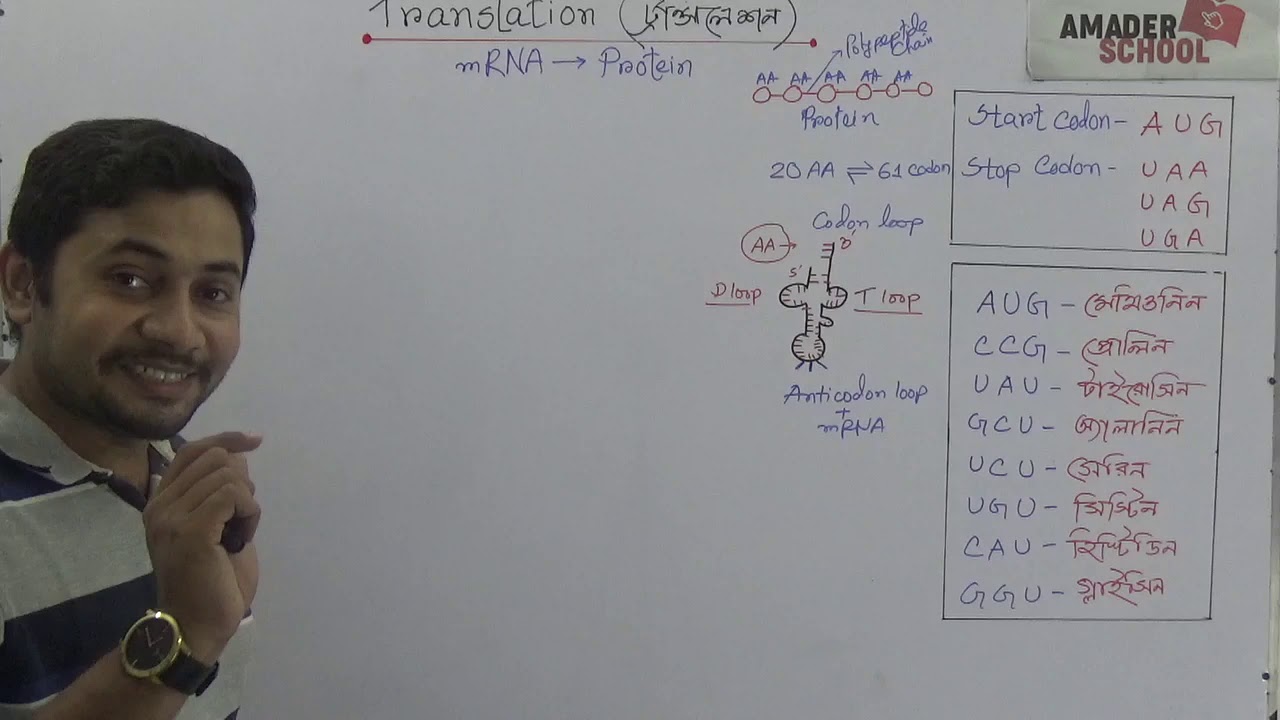 Translation (ট্রান্সলেশন)
mRNA → Protein
Polypeptide
Chain
AA AA AA AA AA
Protein
20 AA ⇌ 61 codon
Codon loop
AA →
3'
5'
D loop
T loop
Anticodon loop
+
mRNA
AMADER
SCHOOL
Start Codon - AUG
Stop Codon - UAA
UAG
UGA
AUG - মেথিওনিন
CCG - প্রোলিন
UAU - টাইরোসিন
GCU - অ্যালানিন
UCU - সেরিন
UGU - সিস্টিন
CAU - হিস্টিডিন
GGU - গ্লাইসিন